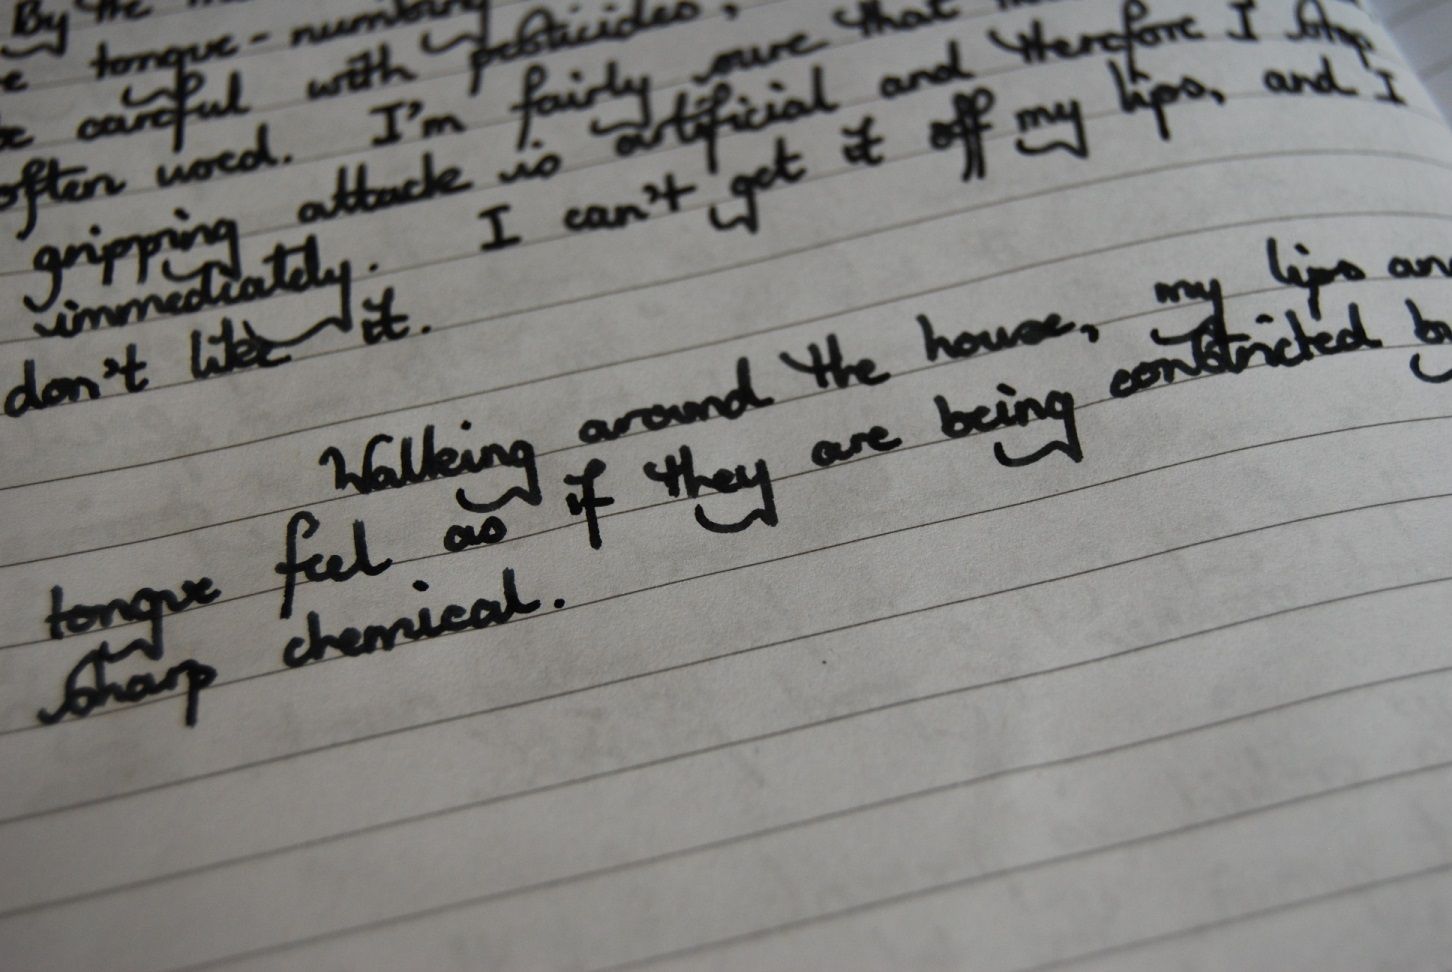 By the
tongue-numbing
careful with pesticides,
often used. I'm fairly sure that
gripping attack is artificial and therefore I stop
immediately. I can't get it off my lips, and I
don't like it.
Walking around the house, my lips and
tongue feel as if they are being constricted by
sharp chemical.